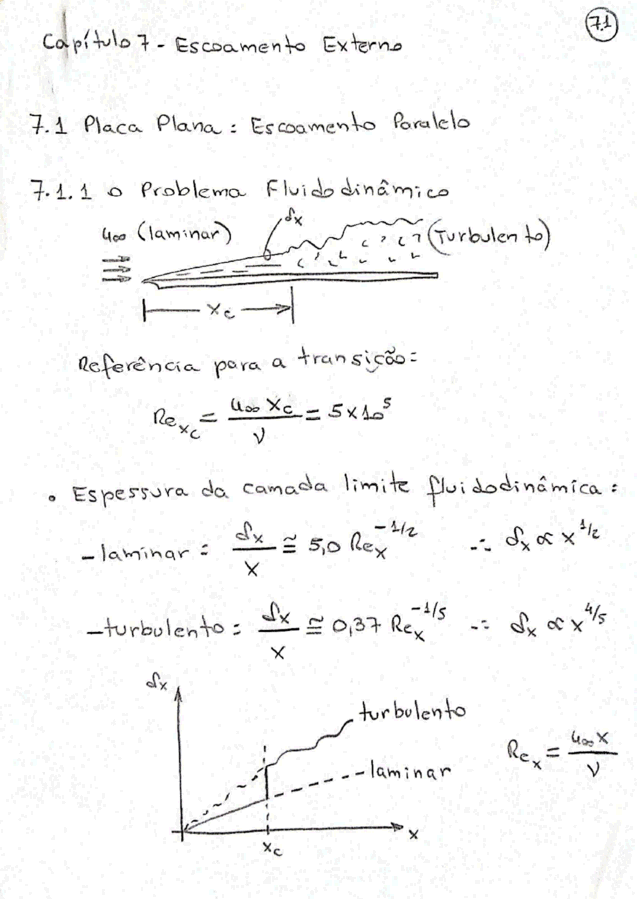 7.1
Capítulo 7 - Escoamento Externo
7.1 Placa Plana: Escoamento Paralelo
7.1.1 o Problema Fluidodinâmico
u∞ (laminar) δx (Turbulento)
xc
Referência para a transição:
Re_xc = u∞ xc / ν = 5x10^5
• Espessura da camada limite fluidodinâmica:
- laminar: δx / x ≅ 5,0 Re_x^-1/2 ∴ δx ∝ x^1/2
- turbulento: δx / x ≅ 0,37 Re_x^-1/5 ∴ δx ∝ x^4/5
δx
turbulento
laminar
Re_x = u∞ x / ν
x
xc